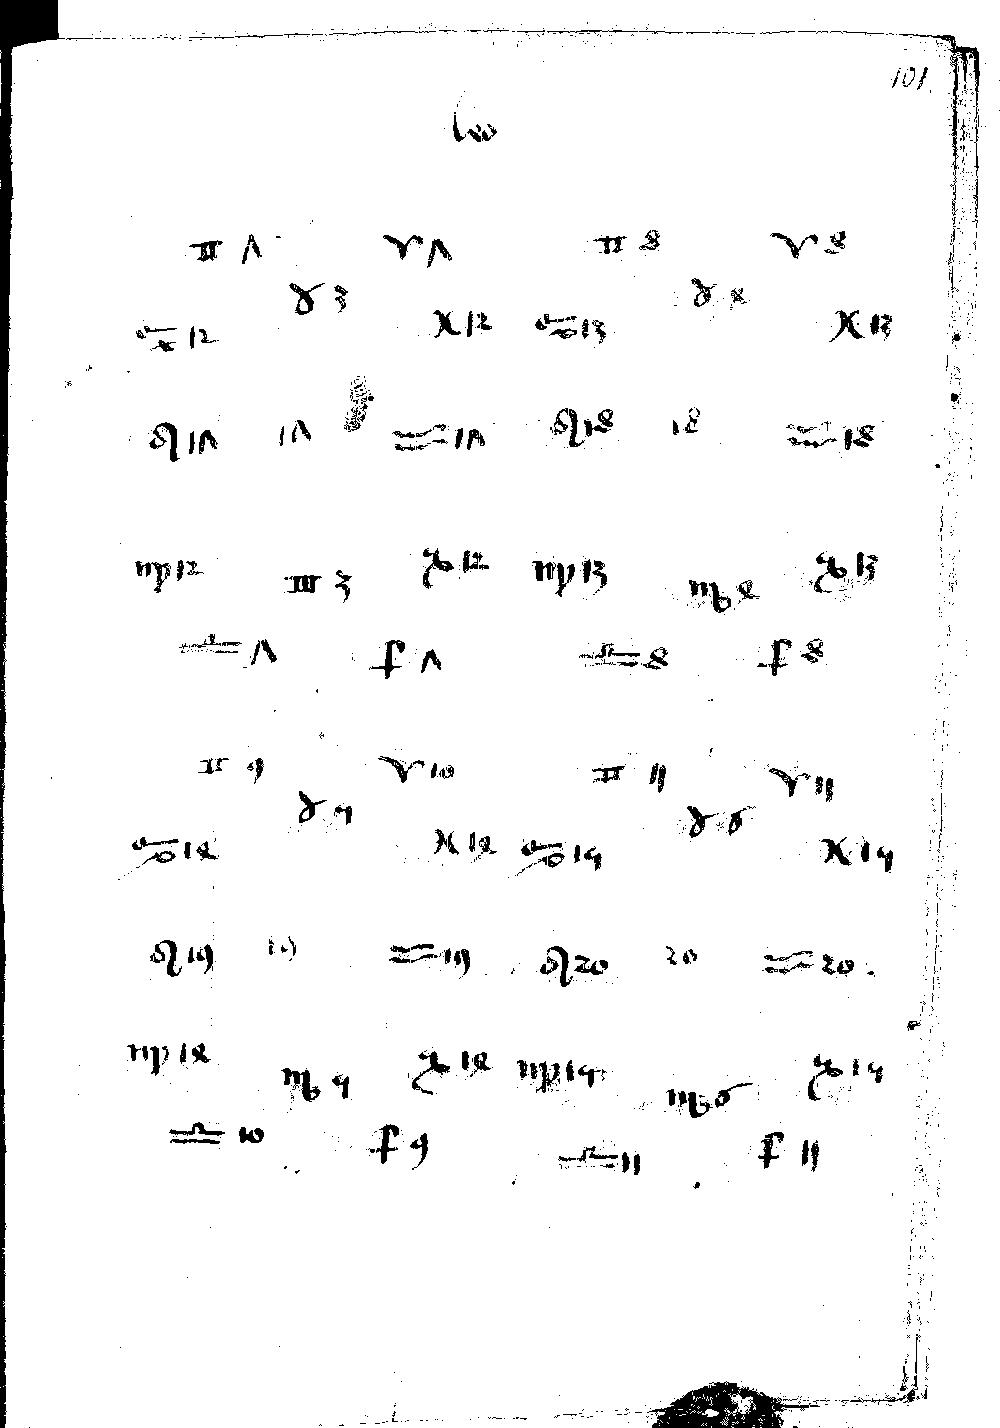 101.
leo
♊ 7 ♈ 7 ♊ 8 ♈ 8
♉ 3 ♉ 4
♋ 12 ♓ 12 ♋ 13 ♓ 13
♌ 17 17 ♒ 17 ♌ 18 18 ♒ 18
♍ 12 ♏ 3 ♑ 12 ♍ 13 ♏ 4 ♑ 13
♎ 7 ♐ 7 ♎ 8 ♐ 8
♊ 9 ♈ 10 ♊ 11 ♈ 11
♉ 5 ♉ 6
♋ 14 ♓ 14 ♋ 15 ♓ 15
♌ 19 19 ♒ 19 ♌ 20 20 ♒ 20.
♍ 14 ♏ 5 ♑ 14 ♍ 15 ♏ 6 ♑ 15
♎ 10 ♐ 9 ♎ 11 ♐ 11